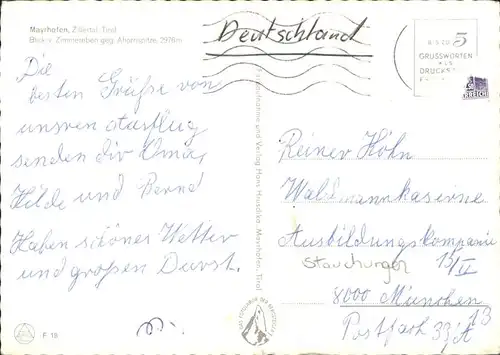 Mayrhofen, Zillertal, Tirol
Blick v. Zimmereben geg. Ahornspitze, 2976m
Deutschland
BIS ZU 5
GRUSSWORTEN
ALS
DRUCKS
Die
besten Grüße von
unsren Ausflug
senden dir Oma,
Hilde und Bernd
Haben schönes Wetter
und großen Durst.
F 18
Verlag Hans Hruschka, Mayrhofen, Tirol
Reiner Höhn
Waldmannkaserne
Ausbildungskompanie
13/II
8000 München
Postfach 33/A 13